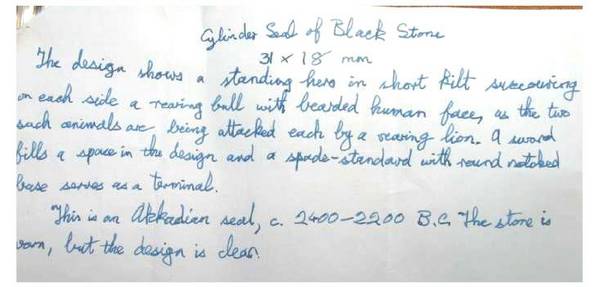 Cylinder Seal of Black Stone
31 x 18 mm
The design shows a standing hero in short kilt succouring
on each side a rearing bull with bearded human face, as the two
such animals are being attacked each by a rearing lion. A sword
fills a space in the design and a spade-standard with round notched
base serves as a terminal.
This is an Akkadian seal, c. 2400-2200 B.C. The stone is
worn, but the design is clear.